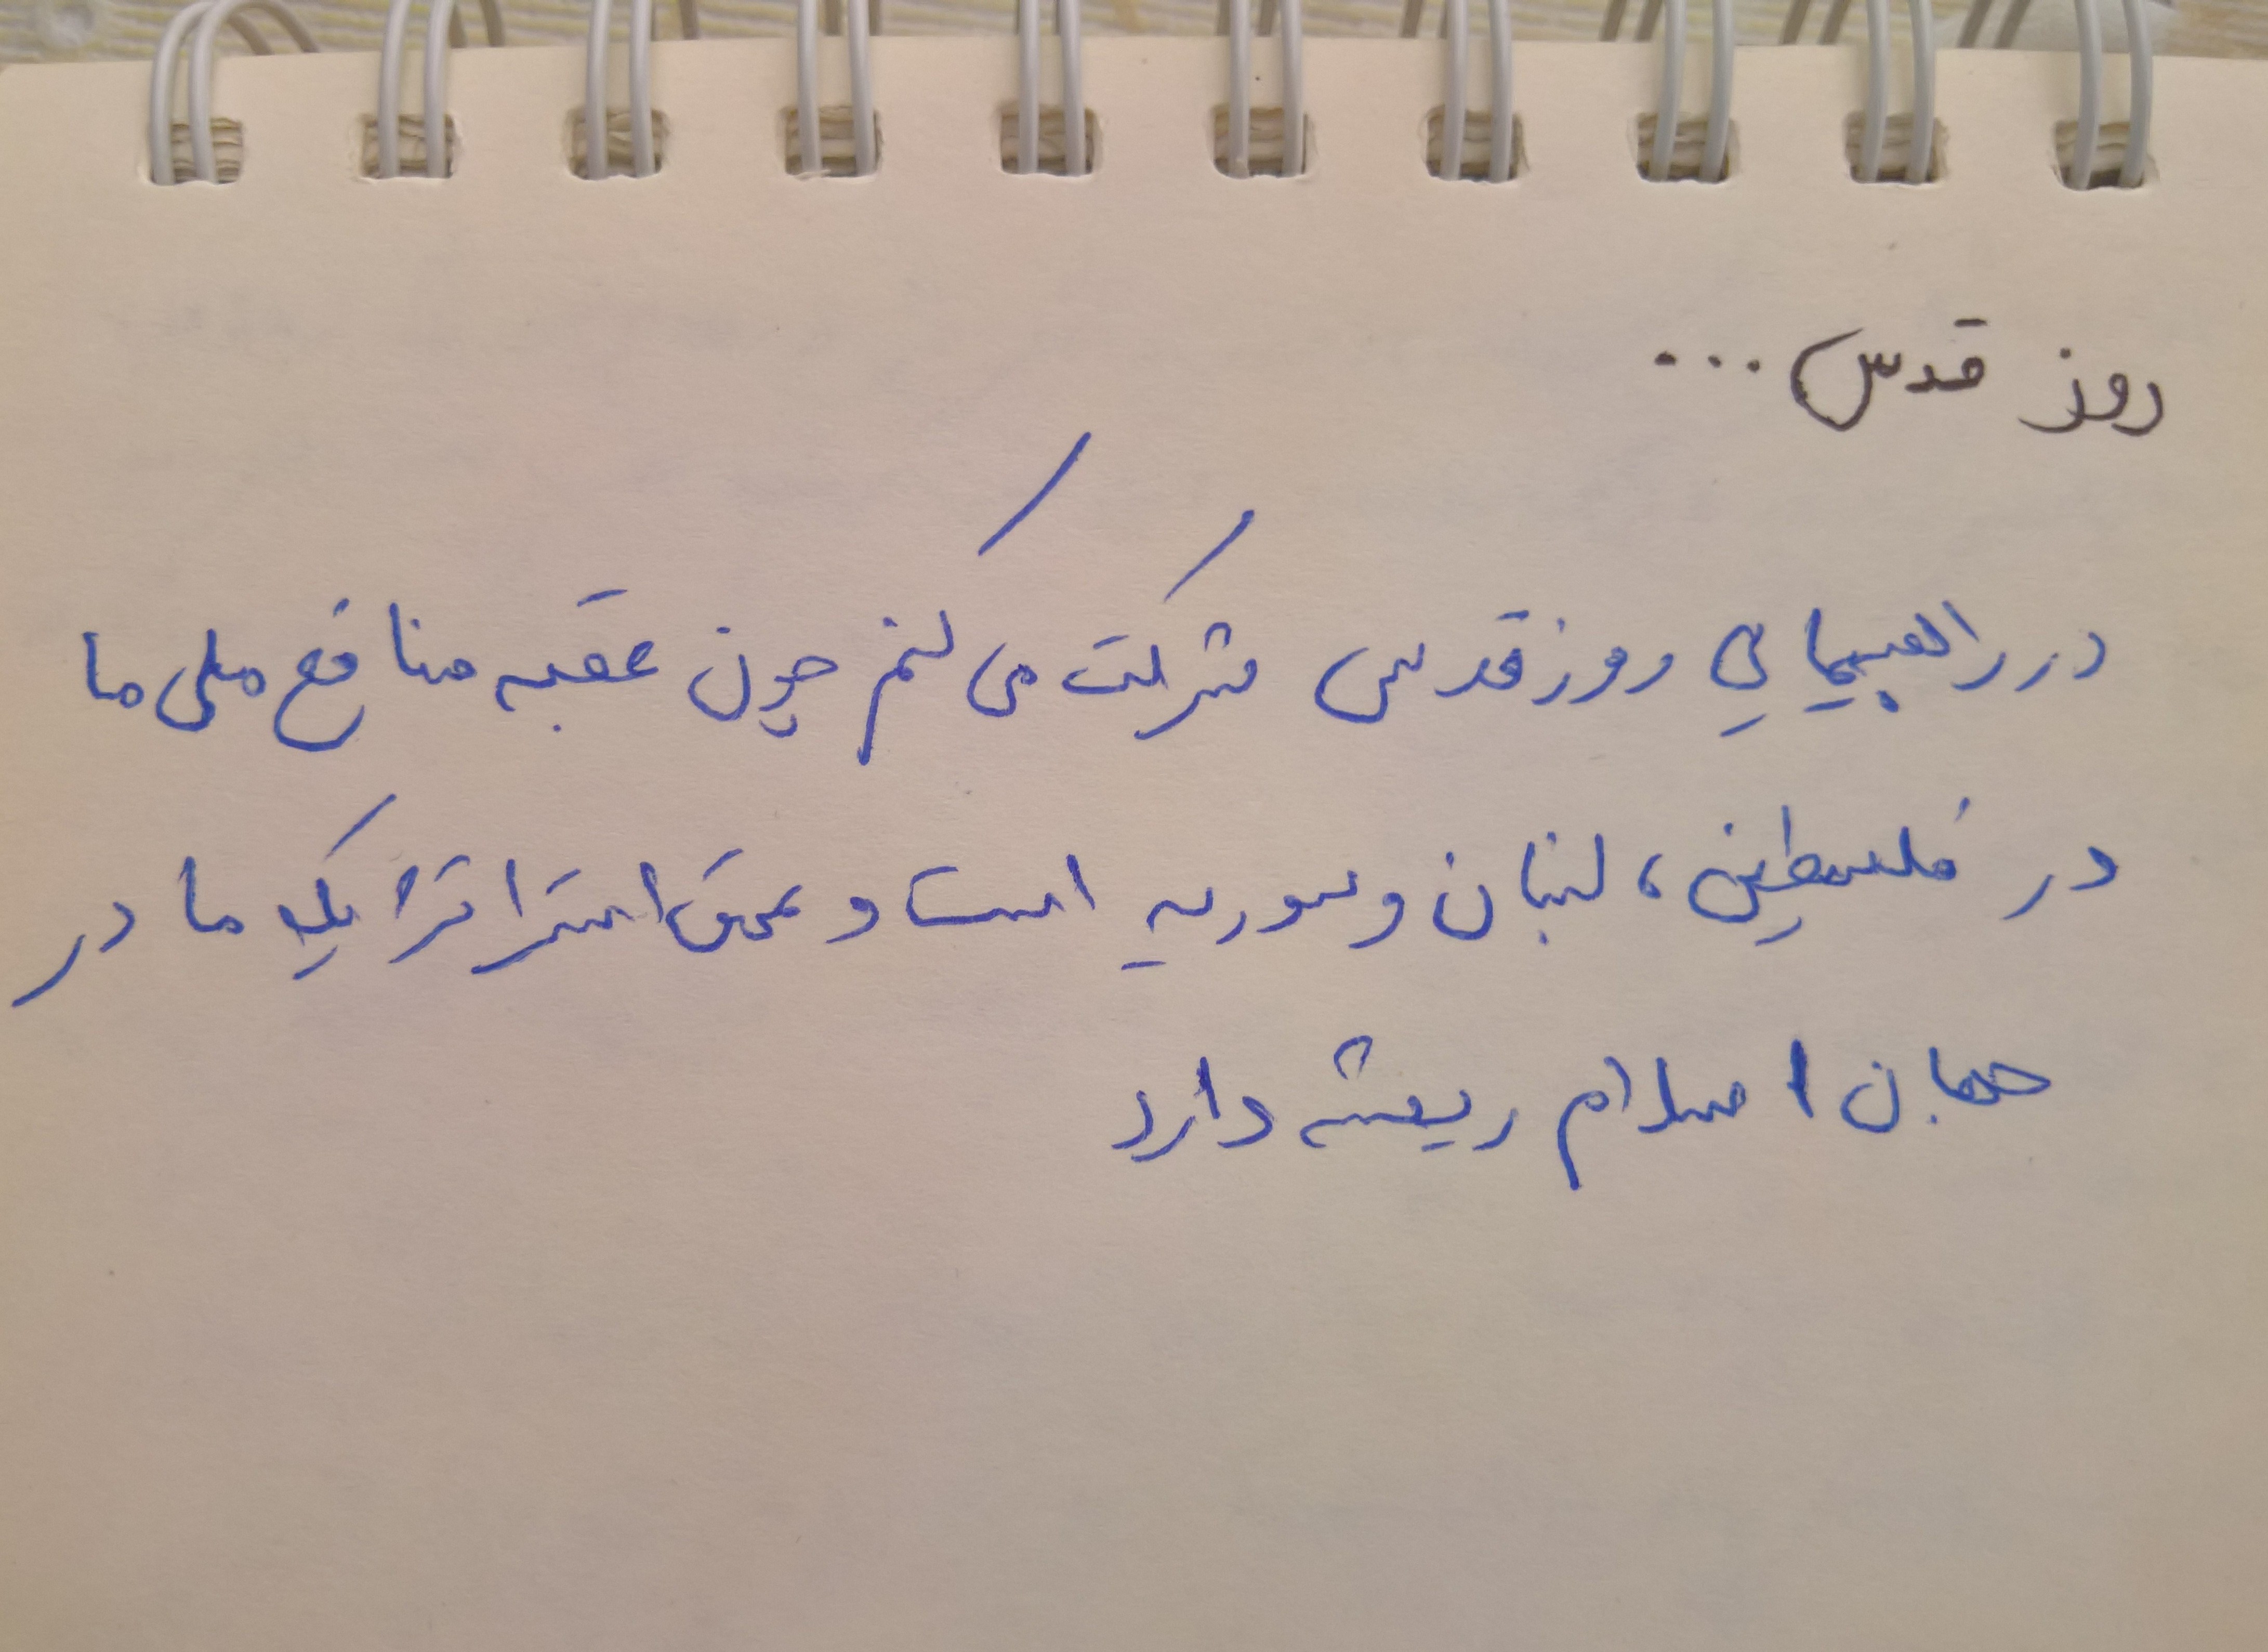 روز قدس ...
در راهپیمایی روز قدس شرکت می کنم چون عقبه منافع ملی ما
در فلسطین، لبنان و سوریه است و عمق استراتژیک ما در
جهان اسلام ریشه دارد